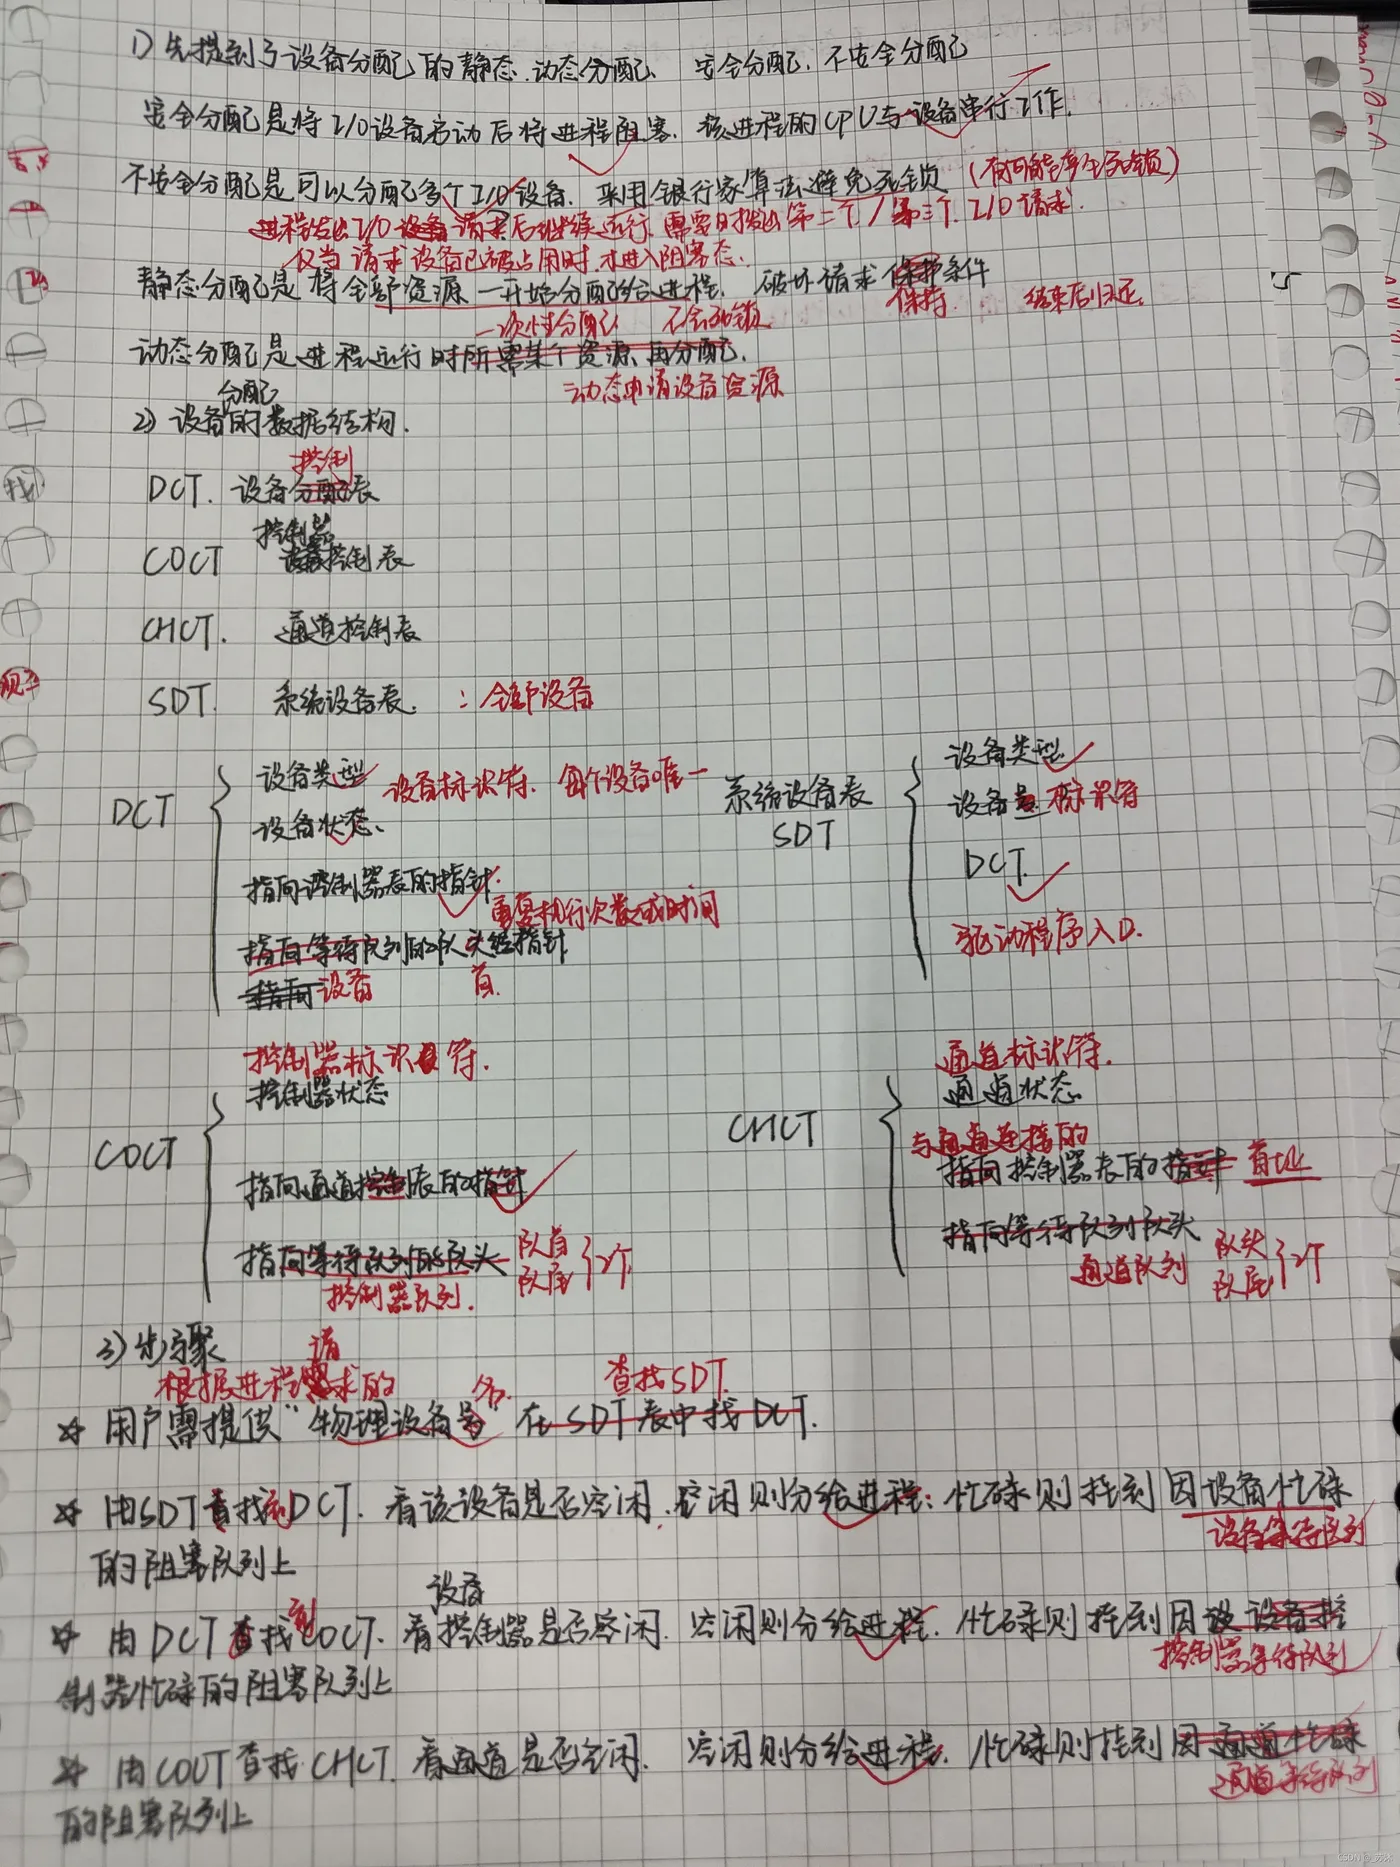 1) 先提到了设备分配的静态、动态分配、 安全分配、不安全分配
安全分配是将 I/O设备启动后将进程阻塞. 该进程的CPU与设备串行工作.
不安全分配是可以分配多个I/O设备. 采用银行家算法避免死锁 (有可能产生死锁)
进程发出I/O设备请求后继续运行. 需要时提出第二个/第三个I/O请求.
仅当请求设备已被占用时.才进入阻塞态.
静态分配是将全部资源一开始分配给进程. 破坏请求保护条件
一次性分配 不会死锁 保持. 结束后归还.
动态分配是进程运行时所需某个资源、再分配.
动态申请设备资源
分配
2) 设备的数据结构.
控制
DCT. 设备分配表
控制器
COCT 设备控制表
CHCT. 通道控制表
SDT. 系统设备表. : 全部设备
DCT
设备类型 设备标识符. 每个设备唯一
设备状态、
指向控制器表的指针.
重复执行次数或时间
指向等待队列的队头的指针
指向设备 首.
系统设备表
SDT
设备类型
设备 标识符
DCT.
驱动程序入口.
COCT
控制器标识符.
控制器状态
指向通道控制表的指针
指向等待队列的队头 队首 队尾 2个
控制器队列.
CHCT
通道标识符.
通道状态
与通道连接的
指向控制器表的指针 首址
指向等待队列队头
通道队列 队头 队尾 2个
3) 步骤
根据进程请求的 名. 查找SDT.
☆ 用户需提供“物理设备号” 在SDT表中找DCT.
☆ 由SDT查找到DCT. 看该设备是否空闲. 空闲则分给进程; 忙碌则挂到因设备忙碌
设备等待队列
的阻塞队列上
设备
☆ 由DCT查找到COCT. 看控制器是否空闲. 空闲则分给进程. 忙碌则挂到因设设备控
控制器等待队列
制器忙碌的阻塞队列上
☆ 由COCT查找CHCT. 看通道是否空闲. 空闲则分给进程. 忙碌则挂到因通道忙碌
通道等待队列
的阻塞队列上
找